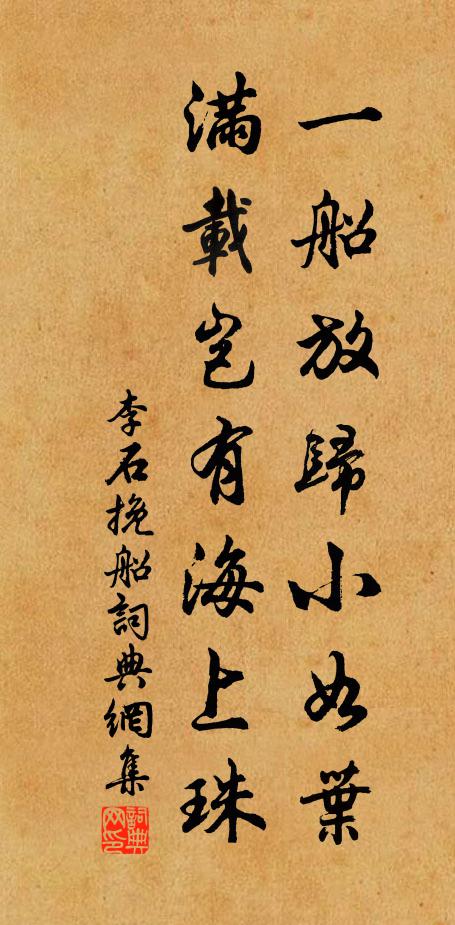 一船放歸小如葉
滿載岂有海上珠
李石挽船詞典網集
詞典网印